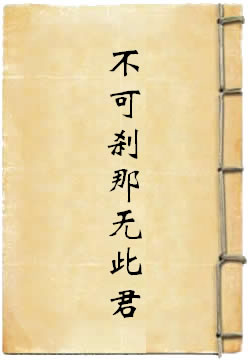 不可刹那无此君